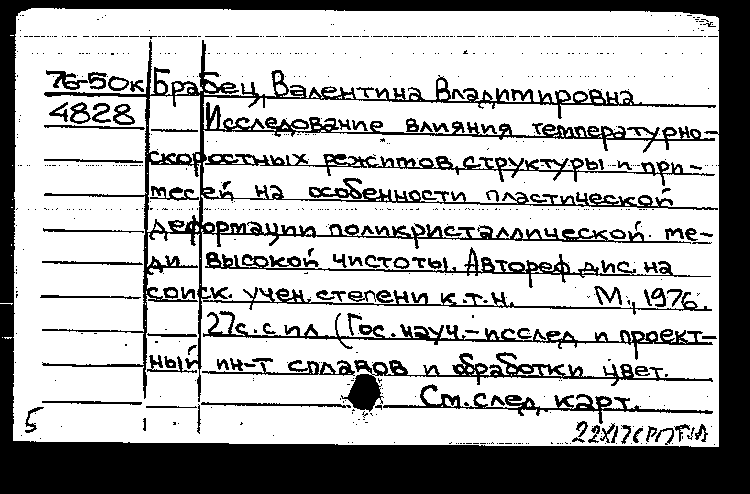 76-50к Брабец, Валентина Владимировна
4828 Исследование влияния температурно-
скоростных режимов, структуры и при-
месей на особенности пластической
деформации поликристаллической ме-
ди высокой чистоты. Автореф. дис. на
соиск. учен. степени к.т.н. М., 1976.
27с. с ил. (Гос. науч.-исслед. и проект-
ный ин-т сплавов и обработки цвет.
См. след. карт.
5